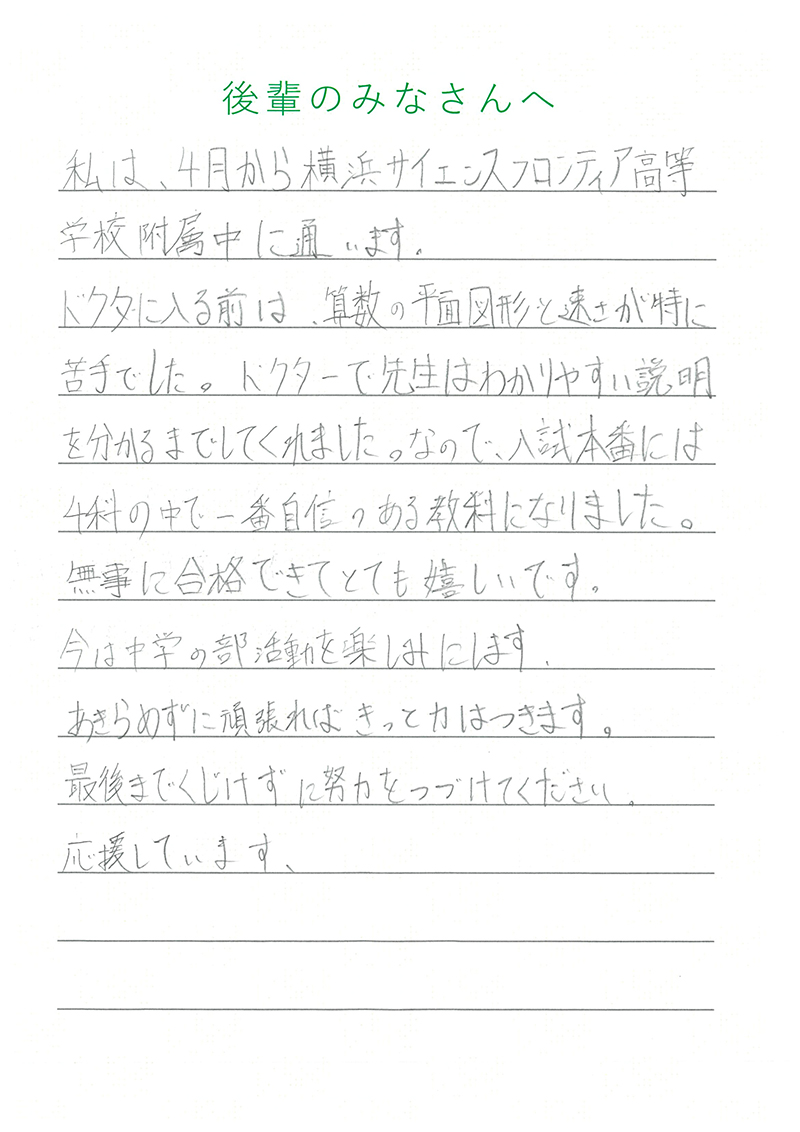 後輩のみなさんへ
私は、4月から横浜サイエンスフロンティア高等
学校附属中に通います。
ドクターに入る前は、算数の平面図形と速さが特に
苦手でした。ドクターで先生はわかりやすい説明
を分かるまでしてくれました。なので、入試本番には
4科の中で一番自信のある教科になりました。
無事に合格できてとても嬉しいです。
今は中学の部活動を楽しみにします.
あきらめずに頑張ればきっと力はつきます。
最後までくじけずに努力をつづけてください。
応援しています、